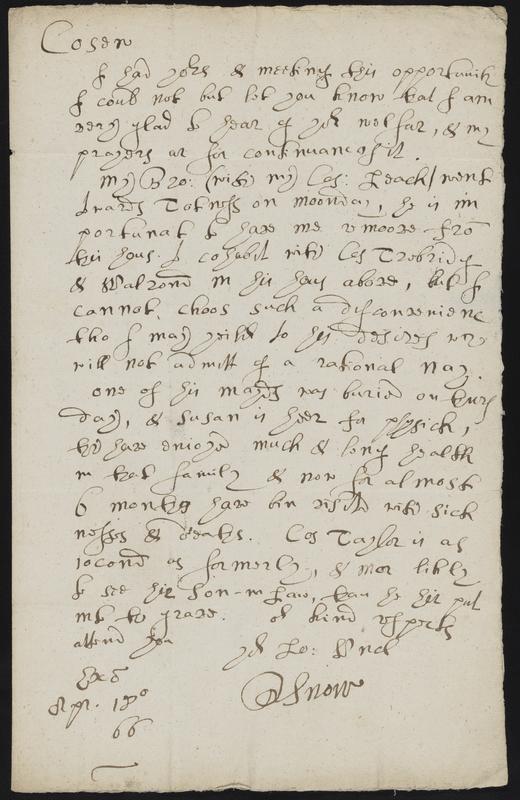 Cosen
I had yors & meeting this opportunity
I coud not but let you know that I am
very glad to hear of yor welfar, & my
prayers ar for continuance of it.
My Bro: (with my Cos: Leach) went
towards Totness on moonday, he is im
portunat to have me remoove fro
this hous & cohabit with Cos Trobridg
& Walrond in his hous above, but I
cannot choos such a disconvenienc
tho I may yeild to his desires wch
will not admitt of a rational Nay.
one of his mayds was buried on thurs
day, & Susan is heer for physick,
they have enioyed much & long health
in that family & now for almost
6 months have bin visited with sick
nesses & deaths. Cos Taylor is as
iocond as formerly, & mor likly
to see his Son-in Law, than he his put
into the grave. kind respects
attend you
yor Lo: Uncl
Snow
Exo
Apr. 18o
66